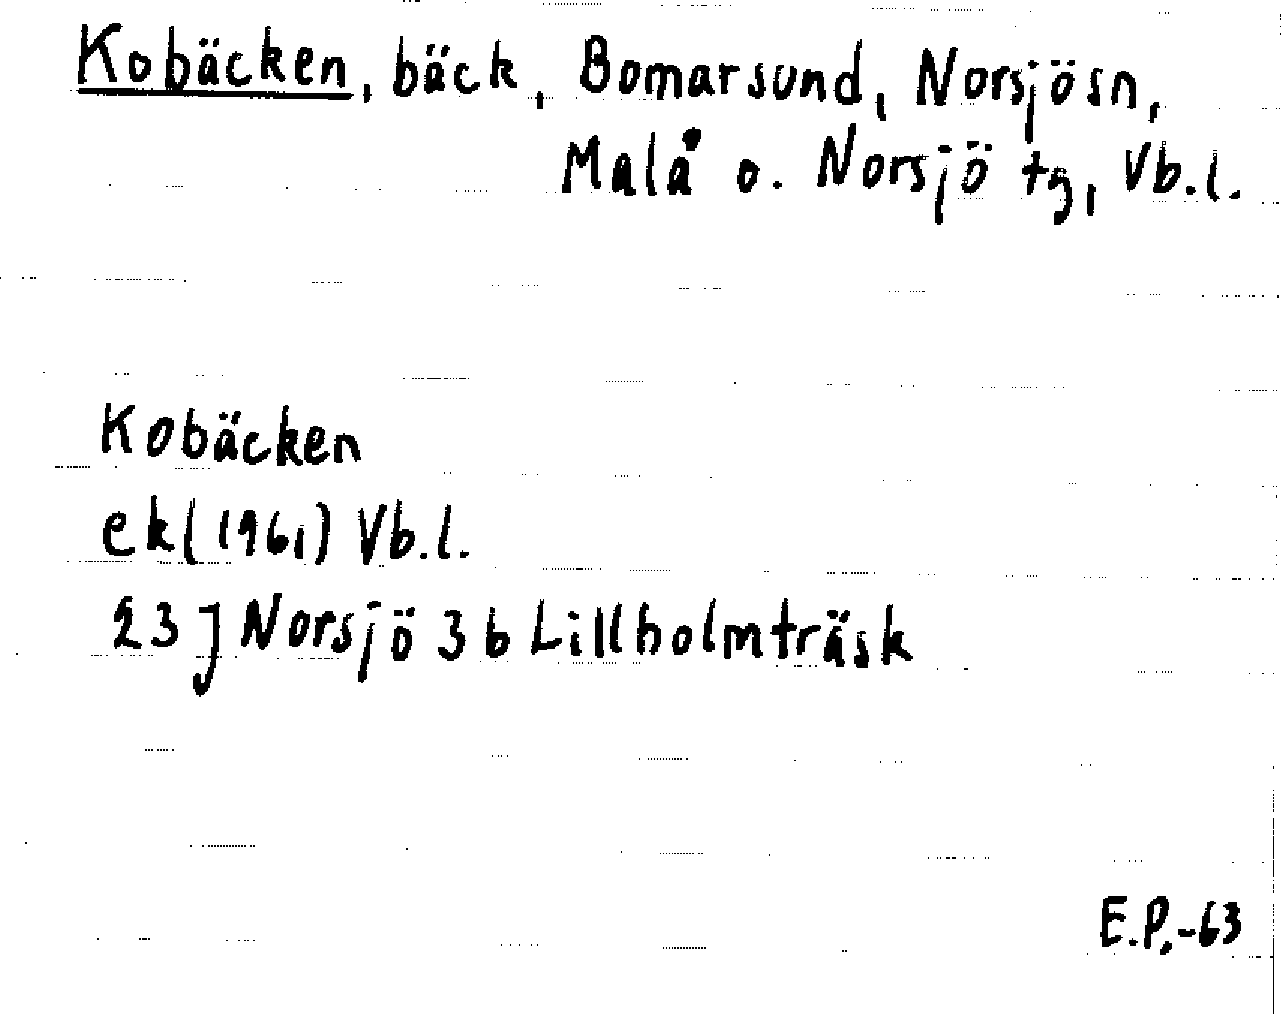 Kobäcken, bäck, Bomarsund, Norsjösn,
Malå o. Norsjö tg, Vb.l.
Kobäcken
ek(1961) Vb.l.
23J Norsjö 3b Lillholmträsk
E.P.-63